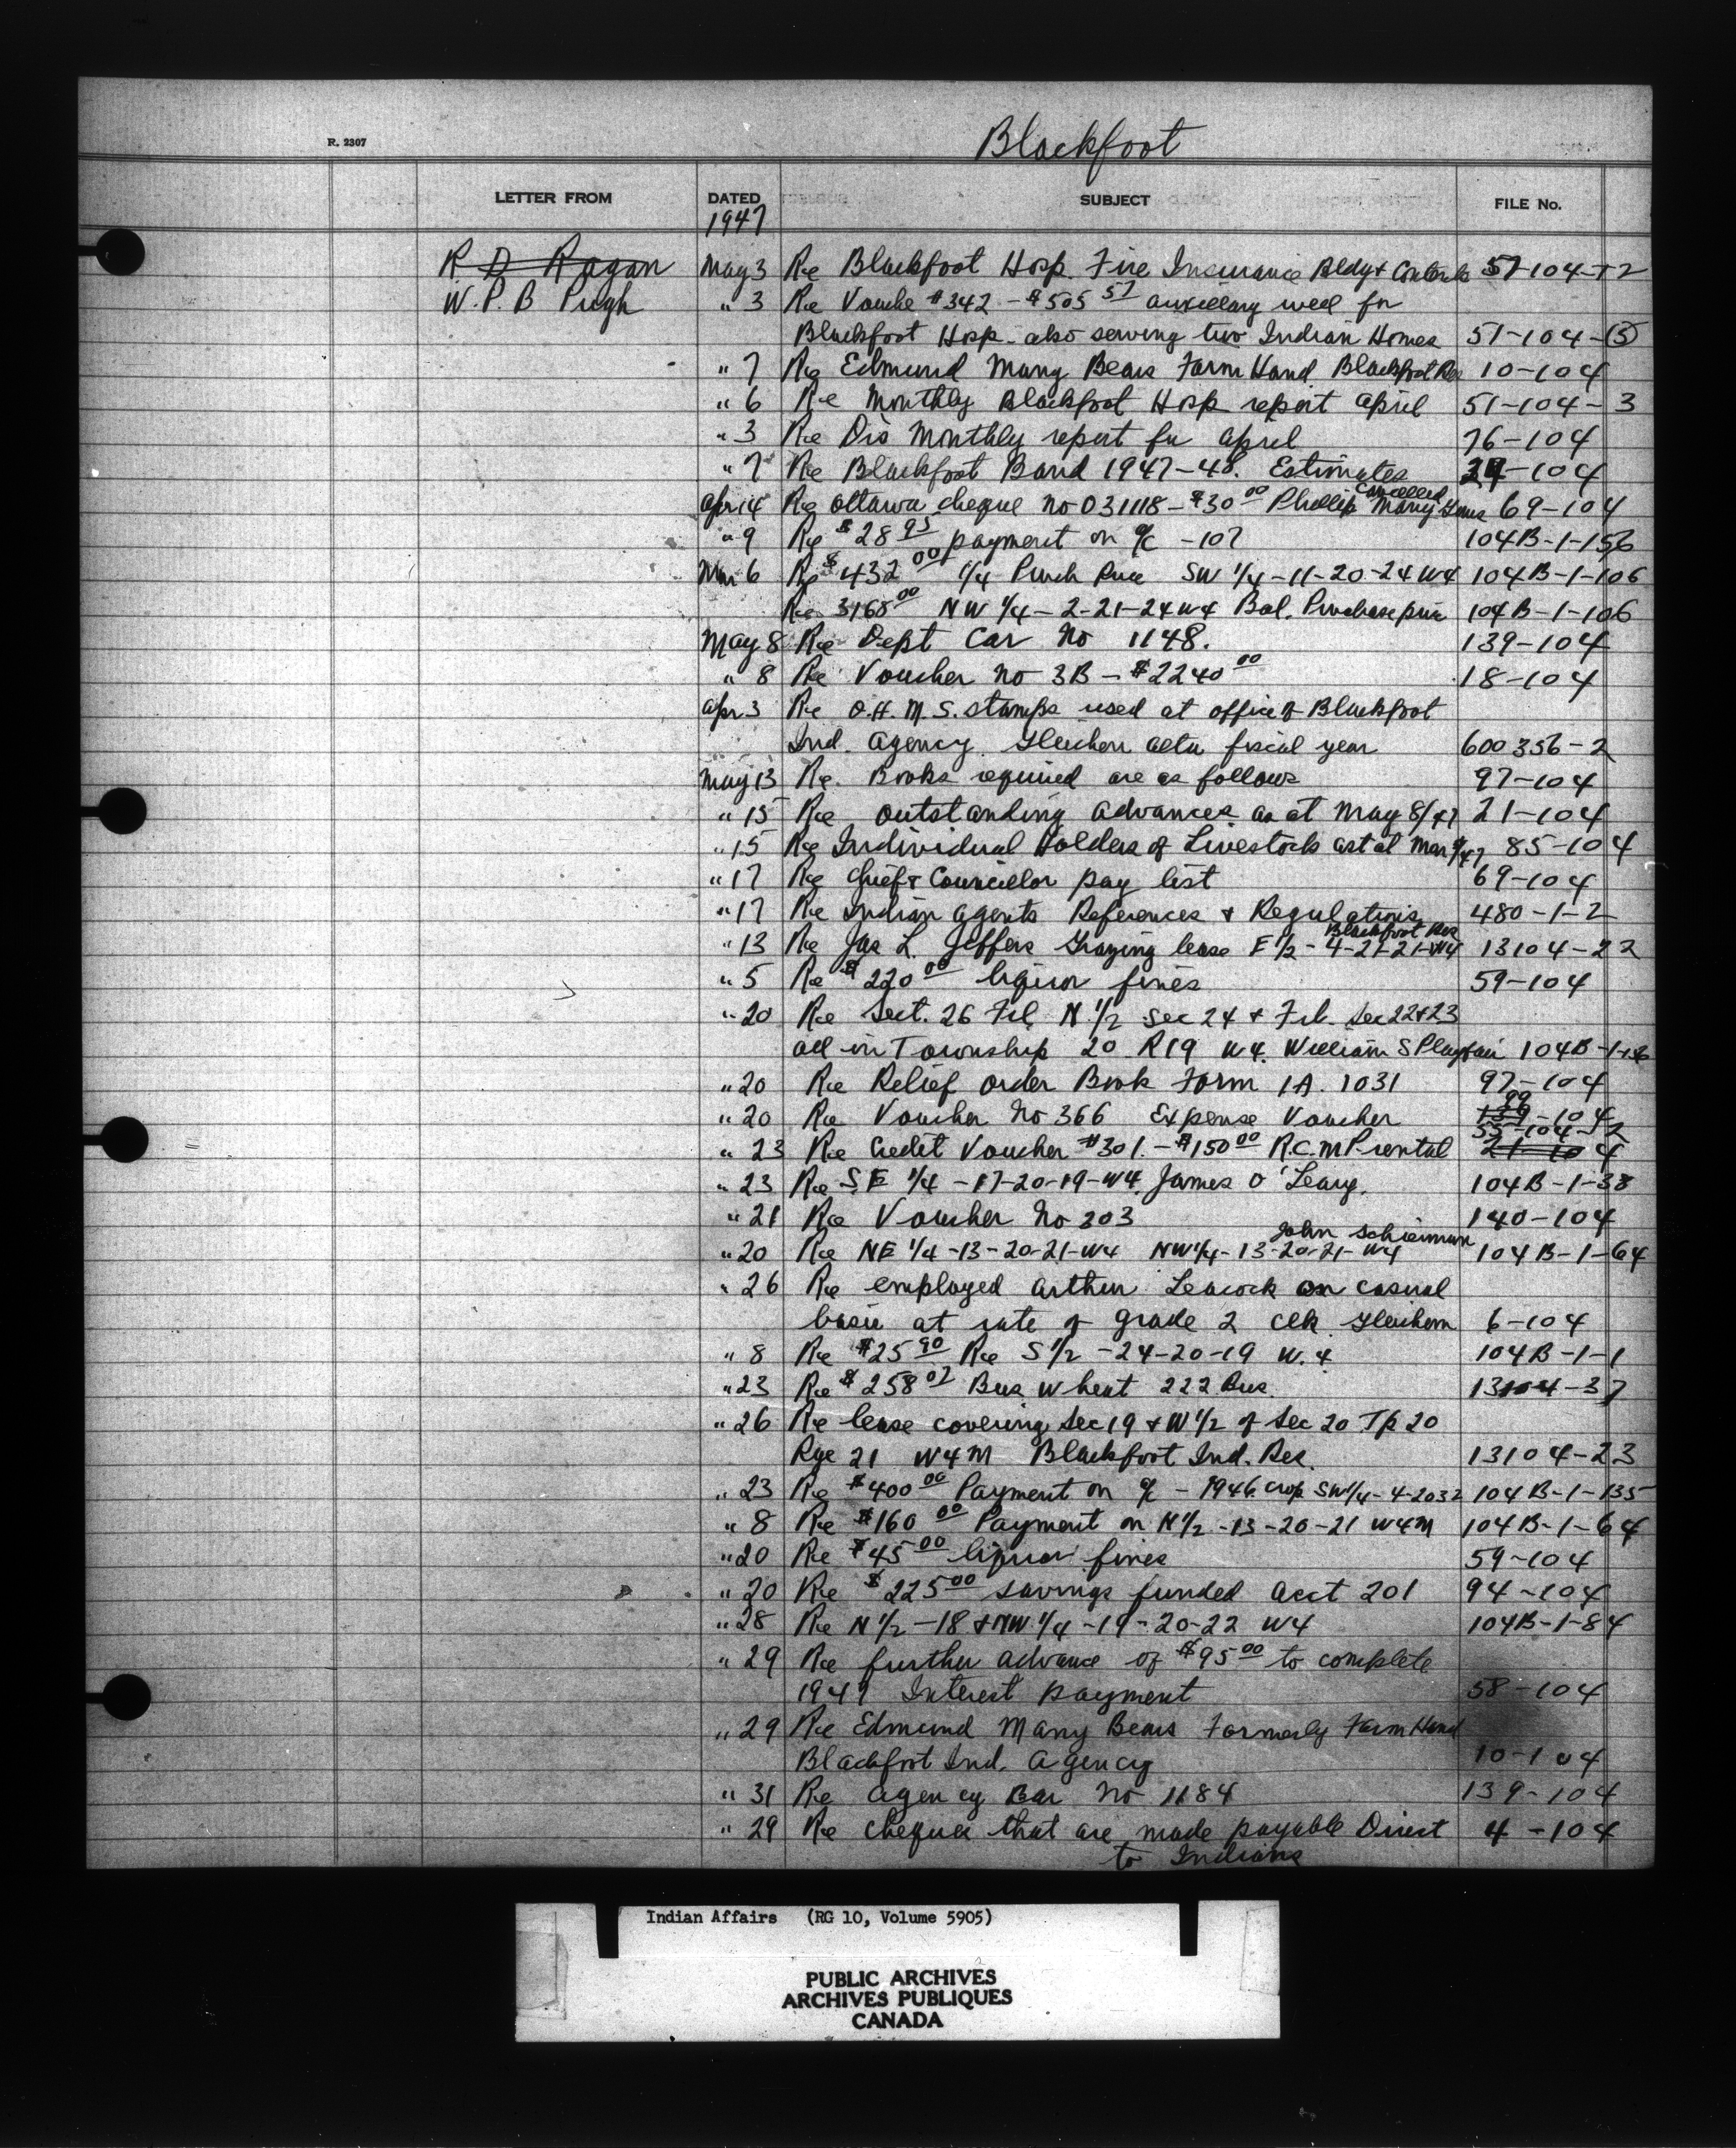 R. 2307
Blackfoot
LETTER FROM DATED SUBJECT FILE No.
1947
R D Ragan May 3 Re Blackfoot Hosp. Fire Insurance Bldg & Contents 57-104-12
W. P. B Pugh " 3 Re Vouche #342 - $505 57 auxillary well for
Blackfoot Hosp. also serving two Indian Homes 51-104-(5)
" 7 Re Edmund Many Bears Farm Hand Blackfoot Res 10-104
" 6 Re Monthly Blackfoot Hosp report April 51-104-3
" 3 Re Dis Monthly report for April 76-104
" 7 Re Blackfoot Band 1947-48. Estimates -104
Apr 14 Re Ottawa cheque No 031118 - $30 00 Phillip Many cancelled 69-104
" 9 Re $28 95 payment on a/c -107 104B-1-156
Mar 6 Re $432 00 1/4 Purch Price SW 1/4-11-20-24 W4 104B-1-106
Re 3168 00 NW 1/4-2-21-24 W4 Bal. Purchase price 104B-1-106
May 8 Re Dept Car No 1148. 139-104
" 8 Re Voucher No 3B - $2240 00 18-104
Apr 3 Re O.H.M.S. stamps used at office of Blackfoot
Ind. Agency Gleichen fiscal year 600 356-2
May 13 Re. Books required are as follows 97-104
" 15 Re outstanding advances as at May 8/47 21-104
" 15 Re Individual Holders of Livestock as at Mar /47 85-104
" 17 Re Chief & Councillor pay list 69-104
" 17 Re Indian Agents References & Regulations 480-1-2
" 13 Re Jas L. Jeffers Grazing lease E 1/2-4-21-21-W4 Blackfoot Res 13104-22
" 5 Re $220 00 liquor fines 59-104
" 20 Re Sect. 26 Frl. N. 1/2 Sec 24 & Frl. Sec 22+23
all in Township 20 R19 W4. William S Playfair 104B-1-
" 20 Re Relief Order Book Form IA. 1031 97-104
" 20 Re Voucher No 366 Expense Voucher 139 99-104
" 23 Re Credit Voucher #301.-$150 00 R.C.M.P. rental 21-104 55-104-12
" 23 Re S.E 1/4-17-20-19-W4. James O'Leary. 104B-1-38
" 21 Re Voucher No 203 140-104
" 20 Re NE 1/4-13-20-21-W4 NW 1/4-13-20-21-W4 John Schieman 104B-1-64
" 26 Re employed Arthur Leacock on casual
basis at rate of grade 2 Clk. Gleichen 6-104
" 8 Re $25 90 Re S 1/2-24-20-19 W.4 104B-1-1
" 23 Re $258 07 Bus wheat 222 Bus. 13104-37
" 26 Re lease covering Sec 19 & W 1/2 of Sec 20 Tp 20
Rge 21 W4M Blackfoot Ind. Res. 13104-23
" 23 Re $400 00 Payment on a/c - 1946 crop SW 1/4-4-2032 104B-1-135
" 8 Re $160 00 Payment on N 1/2-13-20-21 W4M 104B-1-64
" 20 Re $45 00 liquor fines 59-104
" 20 Re $225 00 savings funded acct 201 94-104
" 28 Re N 1/2-18 & NW 1/4-19-20-22 W4 104B-1-84
" 29 Re further advance of $95 00 to complete
1947 Interest payment 58-104
" 29 Re Edmund Many Bears Formerly Farm Hand
Blackfoot Ind. Agency 10-104
" 31 Re Agency Bar No 1184 139-104
" 29 Re cheques that are made payable Direct 4-104
to Indians
Indian Affairs (RG 10, Volume 5905)
PUBLIC ARCHIVES
ARCHIVES PUBLIQUES
CANADA